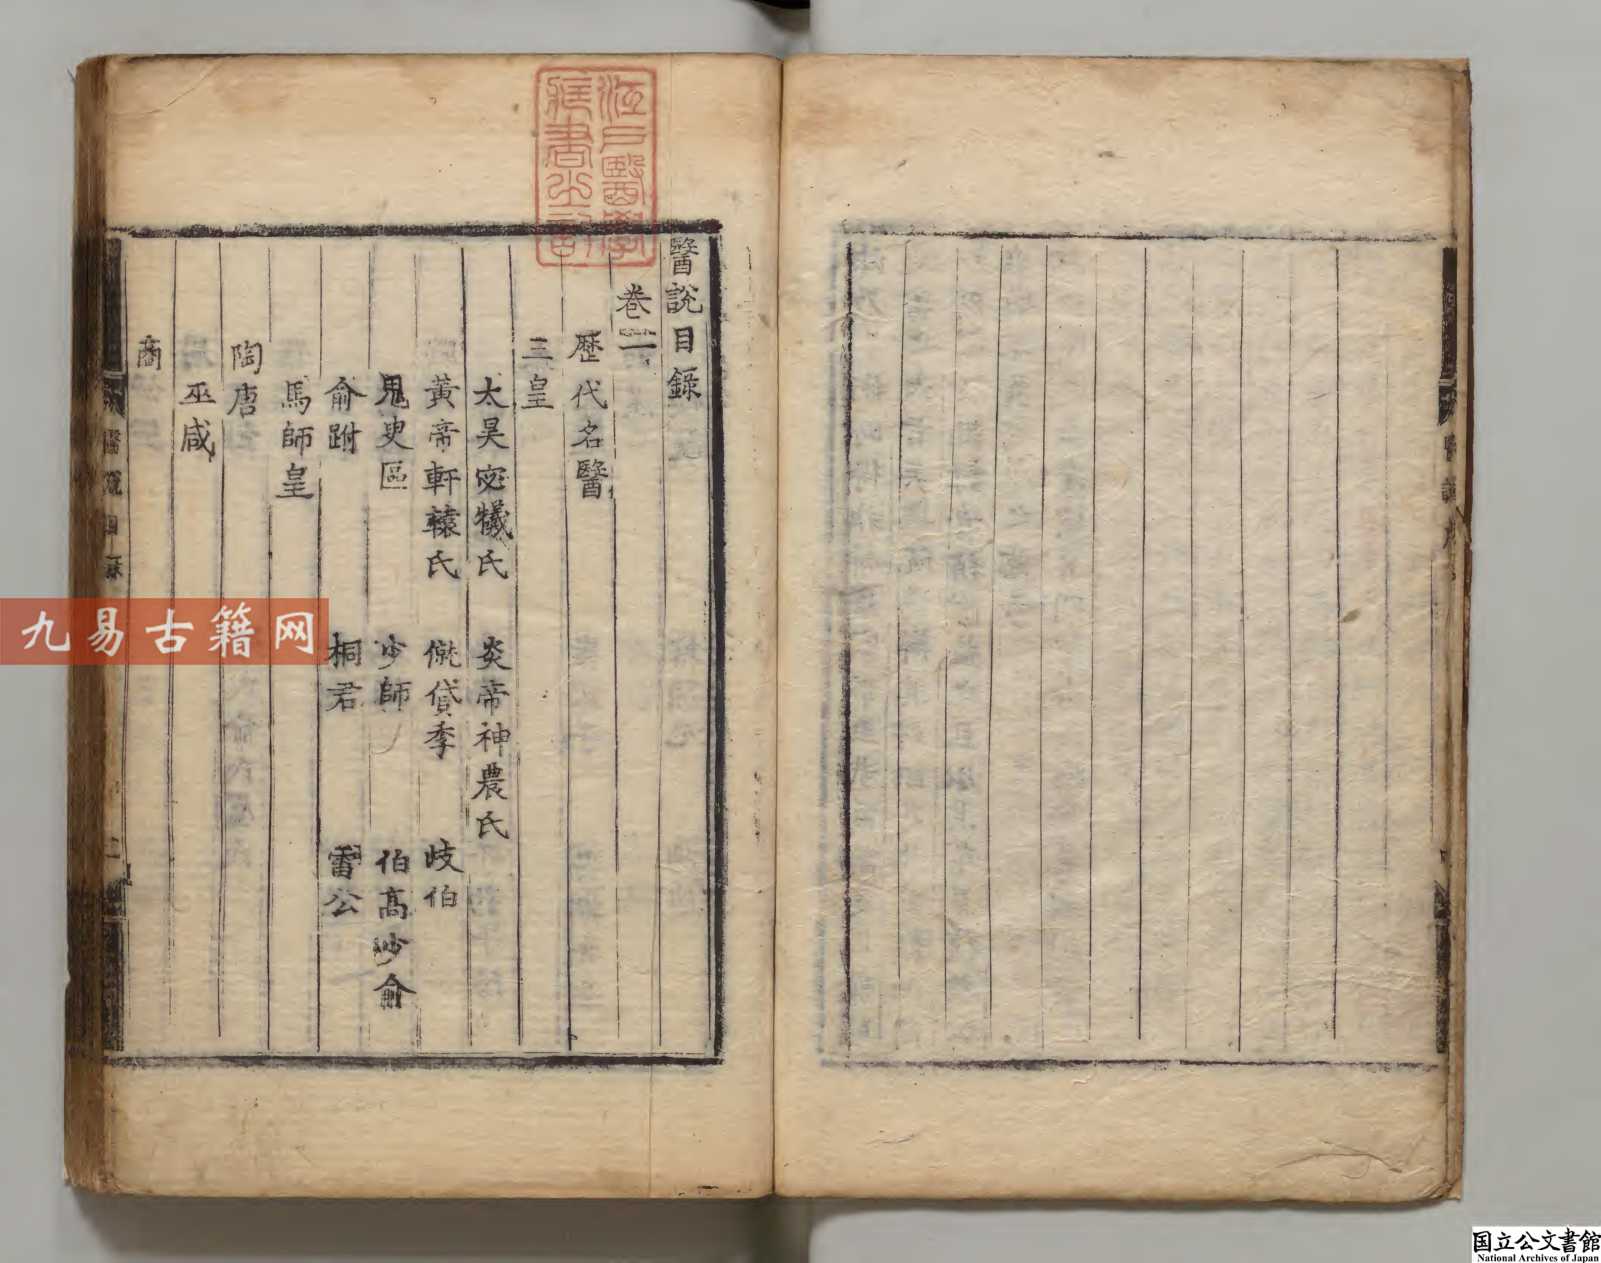 醫說目錄
卷一
歷代名醫
三皇
太昊宓犧氏 炎帝神農氏
黃帝軒轅氏 僦貸季 歧伯
鬼臾區 少師 伯高 少俞
俞跗 桐君 雷公
馬師皇
陶唐
巫咸
商
江戶醫學
藏書之記
九易古籍网
国立公文書館
National Archives of Japan